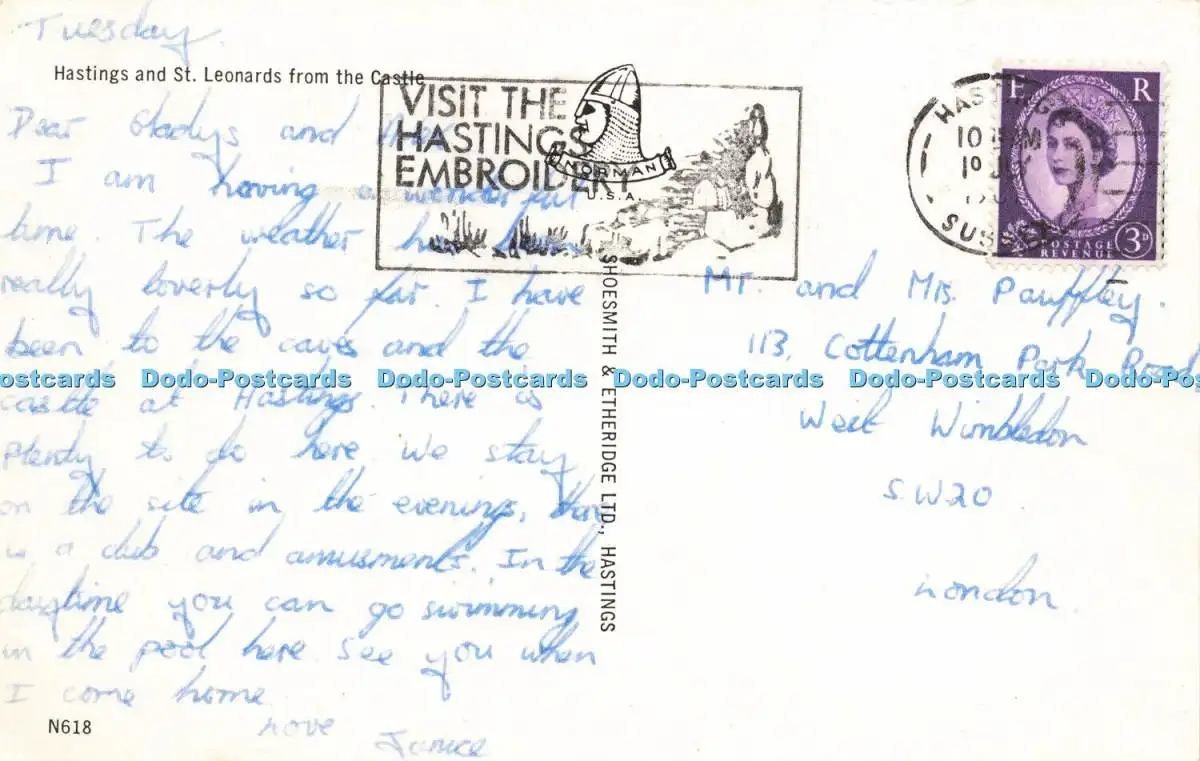 Tuesday.
Hastings and St. Leonards from the Castle
Dear Gladys and
I am having a wonderful
time. The weather has been
really loverly so far. I have
been to the caves and the
castle at Hastings. There is
plenty to do here. We stay
on the site in the evenings, there
is a club and amusments. In the
daytime you can go swimming
in the pool here. See you when
I come home.
Love
Janice
N618
VISIT THE
HASTINGS
EMBROIDERY
NORMAN
U.S.A.
SHOESMITH & ETHERIDGE LTD., HASTINGS
HASTINGS
10
19
SUSSEX
E R
POSTAGE
REVENUE
3D
Mr. and Mrs. Pauffley.
113, Cottenham Park Road
West Wimbledon
S.W20
London.
Dodo-Postcards Dodo-Postcards Dodo-Postcards Dodo-Postcards Dodo-Postcards